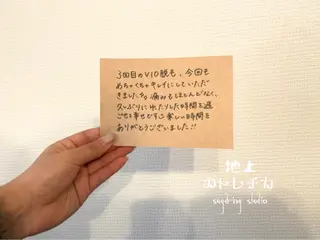 3回目のVIO脱毛、今回も
めちゃくちゃキレイにしていただ
きました♪♪痛みもほとんどなく、
久しぶりにゆったりした時間を過
ごせて幸せです!楽しい時間を
ありがとうございました!!
地上